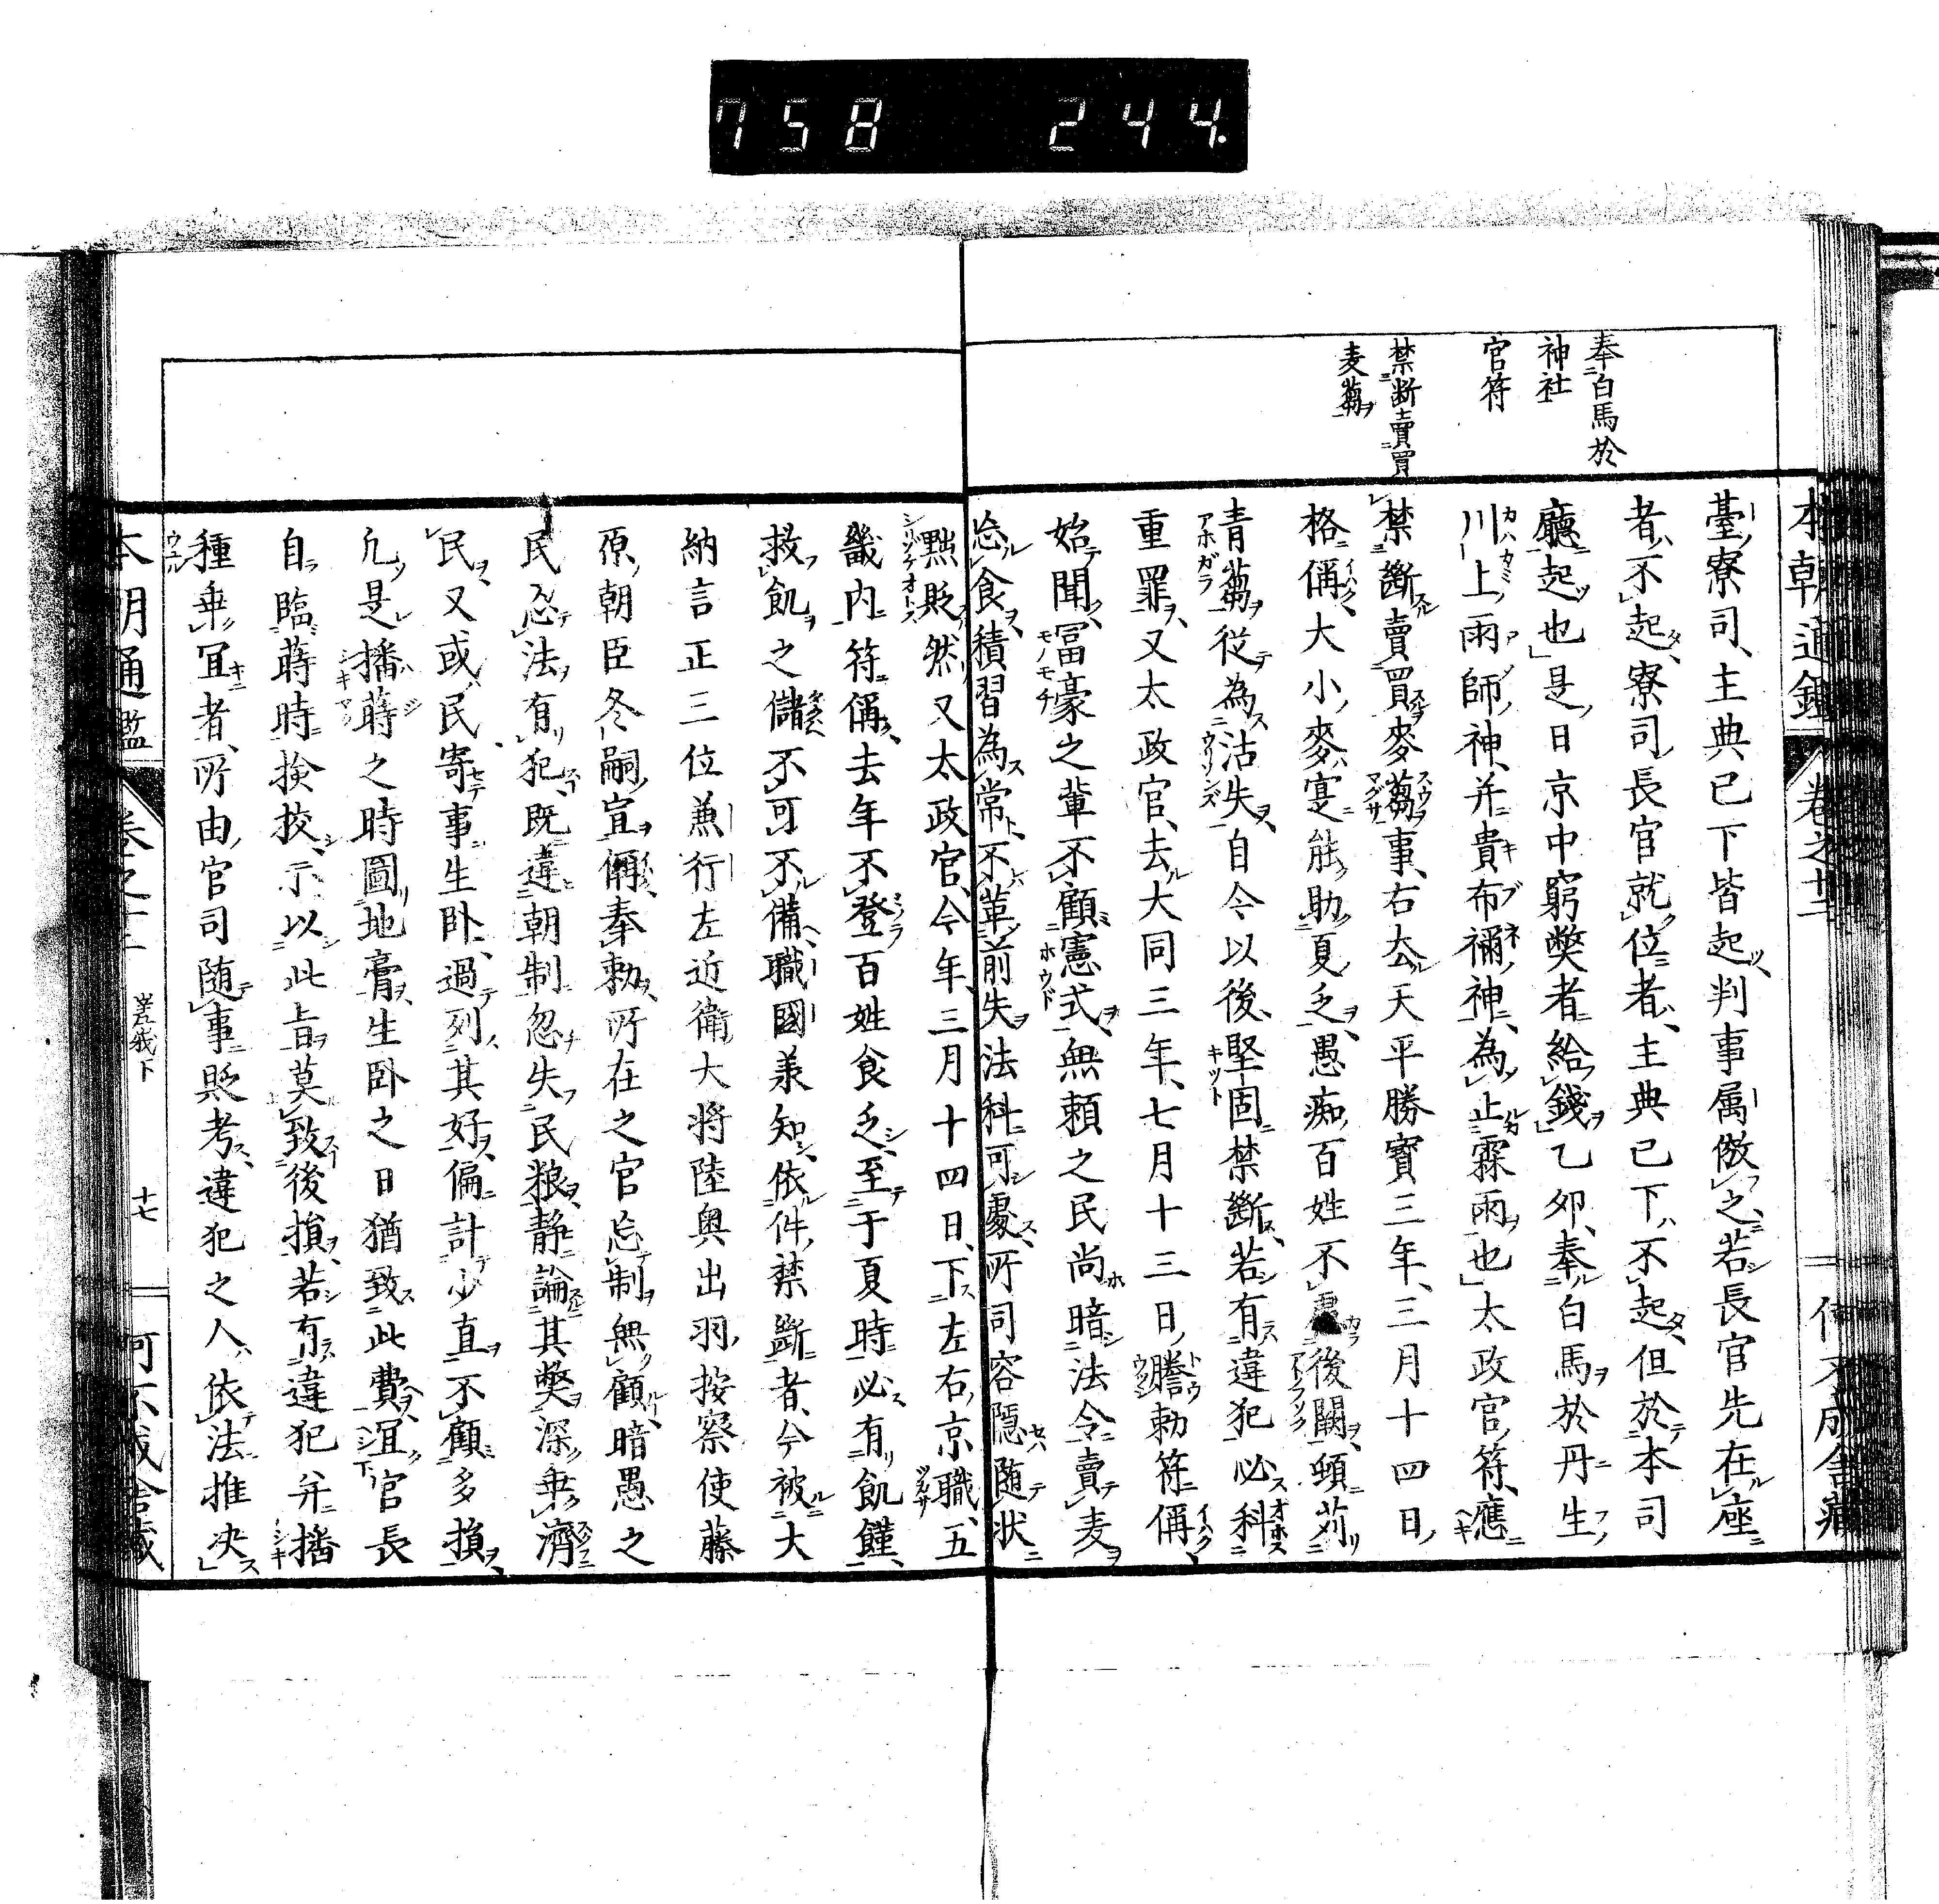 758 244.
奉白馬於
神社
官符
禁断賣買
麦蒭
本朝通鑑 卷之十二
臺寮司、主典已下皆起、判事属倣之、若長官先在座
者、不起、寮司長官就位者、主典已下不起、但於本司
廳起也、是日京中窮弊者給錢、乙夘、奉白馬於丹生
川上雨師神、并貴布禰神、為止霖雨也、太政官符、應
禁斷賣買麥蒭事、右去天平勝寳三年、三月十四日、
格偁、大小麥寔能助夏乏、愚痴百姓不後闕、頓苅
青蒭、従為沽失、自今以後、堅固禁斷、若有違犯必科
重罪、又太政官、去大同三年、七月十三日、謄勅符偁、
始聞、冨豪之輩不顧憲式、無頼之民尚暗法令、賣麦
怠食、積習為常、不革前失、法科可處、所司容隱随状
黜貶、然又太政官、今年三月十四日、下左右京職、五
畿内符偁、去年不登、百姓食乏、至于夏時、必有飢饉、
救飢之儲、不可不備、職國兼知、依件禁斷者、今被大
納言正三位兼行左近衛大将陸奥出羽按察使藤
原朝臣冬嗣宣偁、奉勅、所在之官忘制無顧、暗愚之
民忍法有犯、既違朝制、忽失民粮、静論其弊、深乗濟
民、又或民寄事生卧、過列其好、偏計少直、不顧多損、
凢是播蒔之時圖地膏、生卧之日猶致此費、冝官長
自臨蒔時、撿挍、示以此旨、莫致後損、若有違犯并播
種乗冝者、所由官司随事貶考、違犯之人、依法推决、
本朝通鑑 卷之十二 嵯峨下 十七